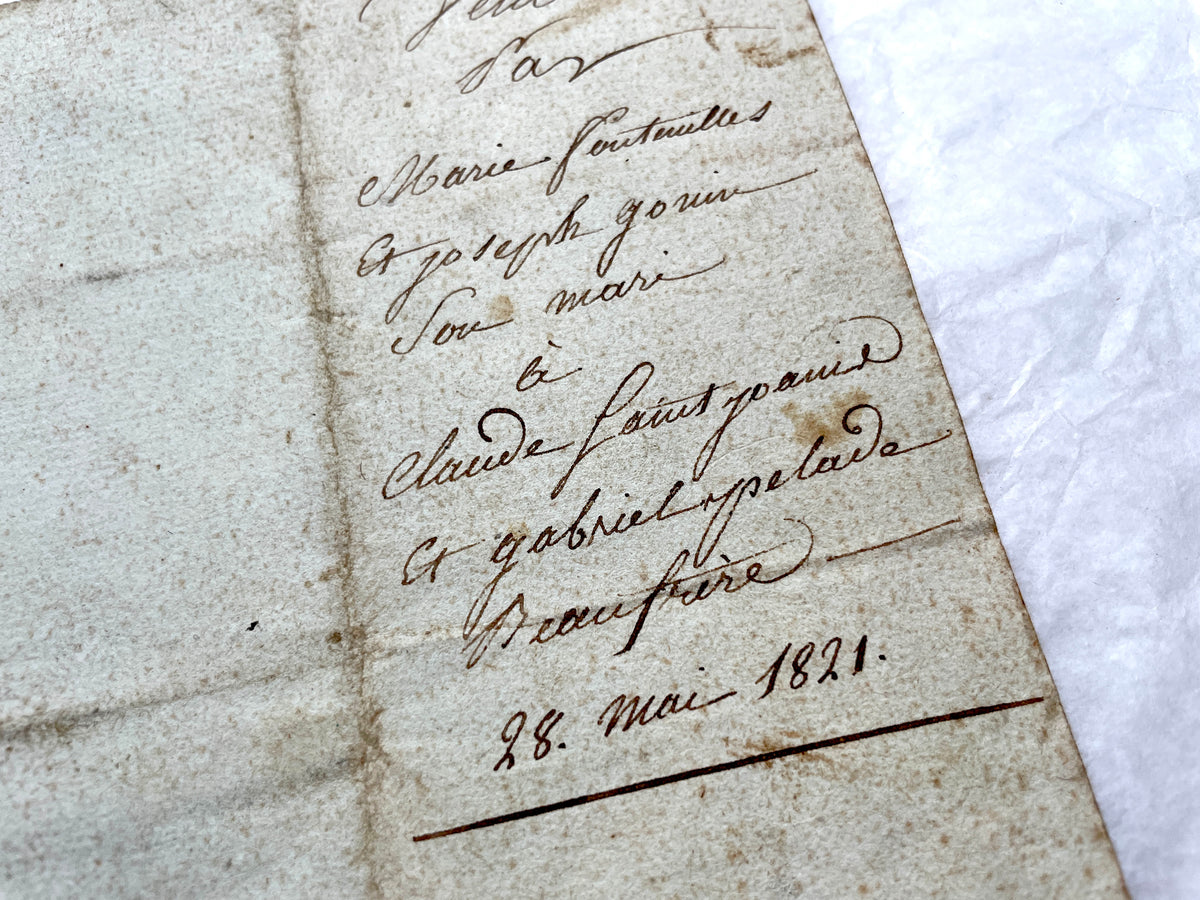 Par
Marie fontenilles
Et joseph gonin
Son mari
à
Claude Saint joanis
Et gabriel pelade
Beaufrère
28. mai 1821.